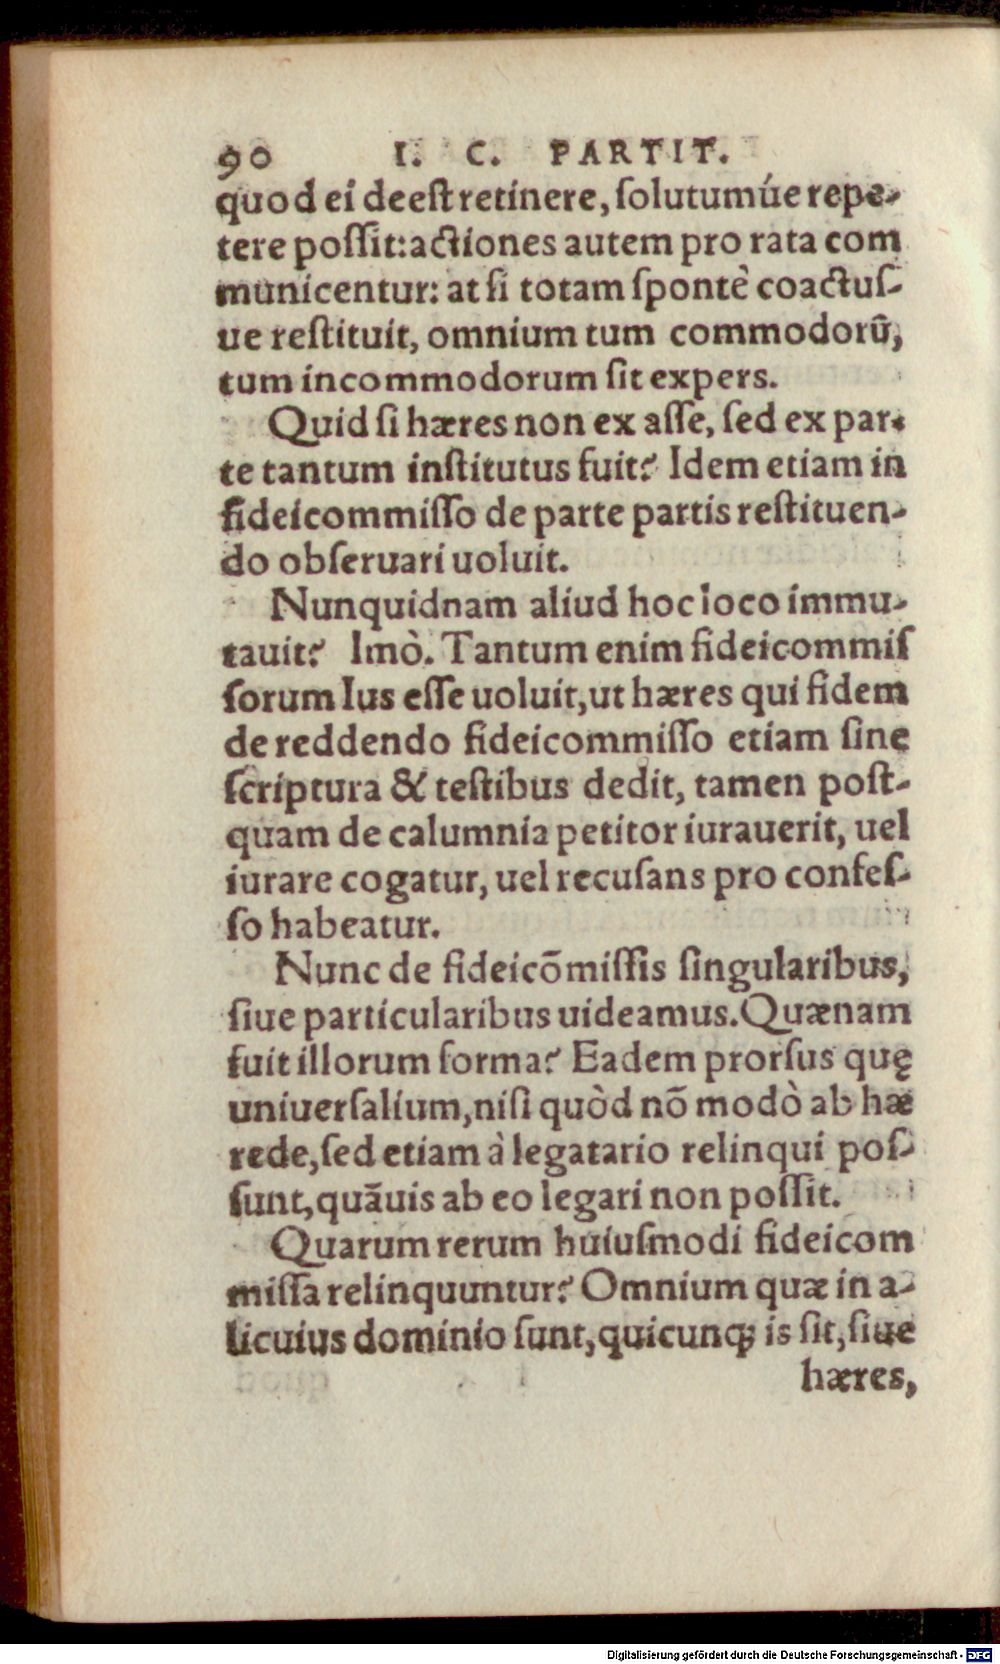 90 I. C. PARTIT.
quod ei deest retinere, ſolutumúe repe-
tere poſſit: actiones autem pro rata com
municentur: at ſi totam ſpontè coactuſ-
ue reſtituit, omnium tum commodorū,
tum incommodorum ſit expers.
Quid ſi hæres non ex aſſe, ſed ex par-
te tantum inſtitutus fuit? Idem etiam in
fideicommiſſo de parte partis reſtituen-
do obſeruari uoluit.
Nunquidnam aliud hoc loco immu-
tauit? Imò. Tantum enim fideicommiſ
ſorum Ius eſſe uoluit, ut hæres qui fidem
de reddendo fideicommiſſo etiam ſine
ſcriptura & teſtibus dedit, tamen poſt-
quam de calumnia petitor iurauerit, uel
iurare cogatur, uel recuſans pro confeſ-
ſo habeatur.
Nunc de fideicōmiſſis ſingularibus,
ſiue particularibus uideamus. Quænam
fuit illorum forma? Eadem prorſus quę
uniuerſalium, niſi quòd nō modò ab hæ
rede, ſed etiam à legatario relinqui poſ-
ſunt, quāuis ab eo legari non poſſit.
Quarum rerum huiuſmodi fideicom
miſſa relinquuntur? Omnium quæ in a-
licuius dominio ſunt, quicunq; is ſit, ſiue
hæres,
Digitalisierung gefördert durch die Deutsche Forschungsgemeinschaft - DFG